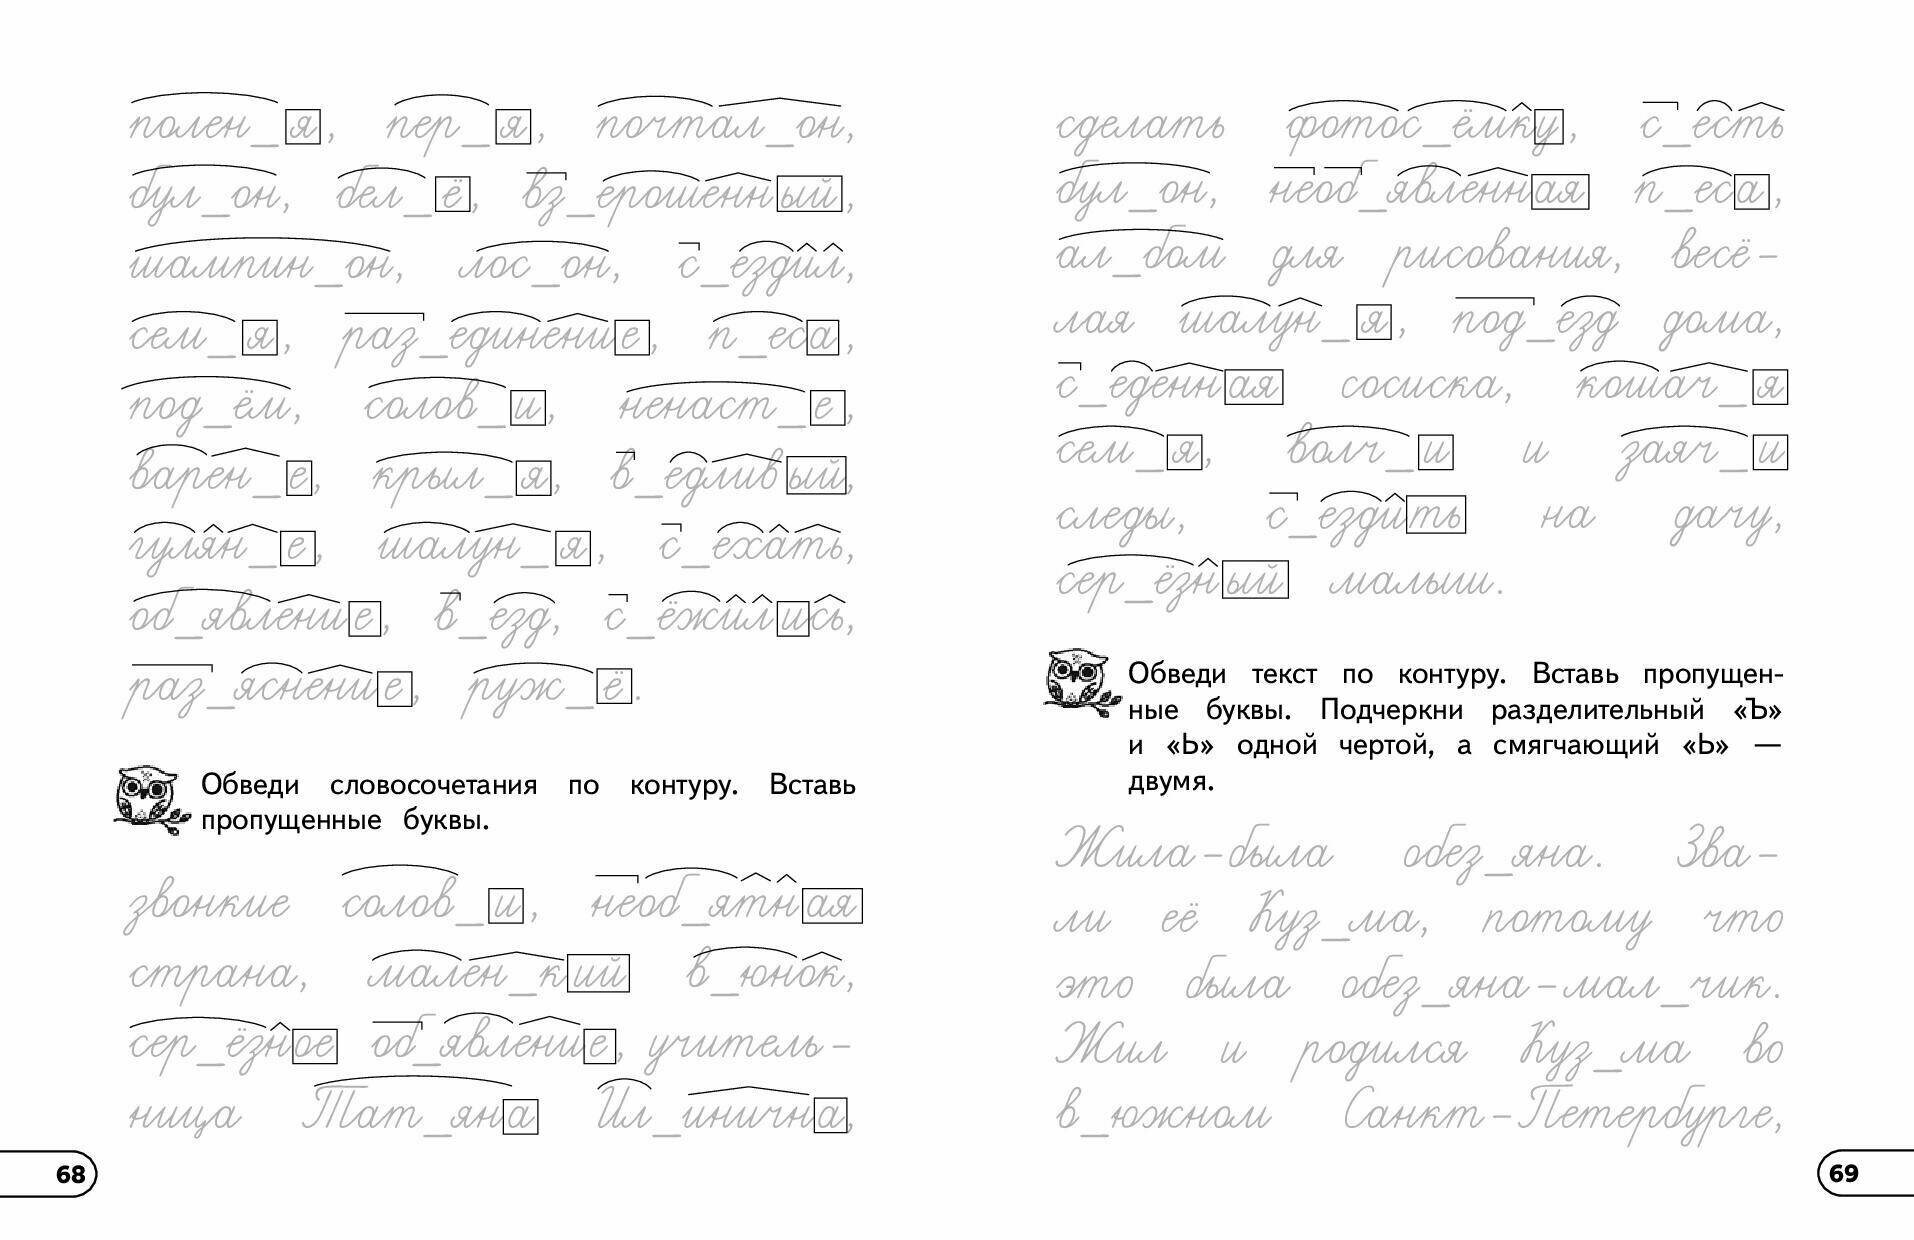 полен_я, пер_я, почтал_он,
бул_он, бел_ё, вз_ерошенный,
шампин_он, лос_он, с_ездил,
сем_я, раз_единение, п_еса,
под_ём, солов_и, ненаст_е,
варен_е, крыл_я, в_едливый,
гулян_е, шалун_я, с_ехать,
об_явление, в_езд, с_ёжились,
раз_яснение, руж_ё.
Обведи словосочетания по контуру. Вставь
пропущенные буквы.
звонкие солов_и, необ_ятная
страна, мален_кий в_юнок,
сер_ёзное об_явление, учитель-
ница Тат_яна Ил_инична,
68
сделать фотос_ёмку, с_есть
бул_он, необ_явленная п_еса,
ал_бом для рисования, весё-
лая шалун_я, под_езд дома,
с_еденная сосиска, кошач_я
сем_я, волч_и и заяч_и
следы, с_ездить на дачу,
сер_ёзный малыш.
Обведи текст по контуру. Вставь пропущен-
ные буквы. Подчеркни разделительный «Ъ»
и «Ь» одной чертой, а смягчающий «Ь» —
двумя.
Жила-была обез_яна. Зва-
ли её Куз_ма, потому что
это была обез_яна-мал_чик.
Жил и родился Куз_ма во
в_южном Санкт-Петербурге,
69